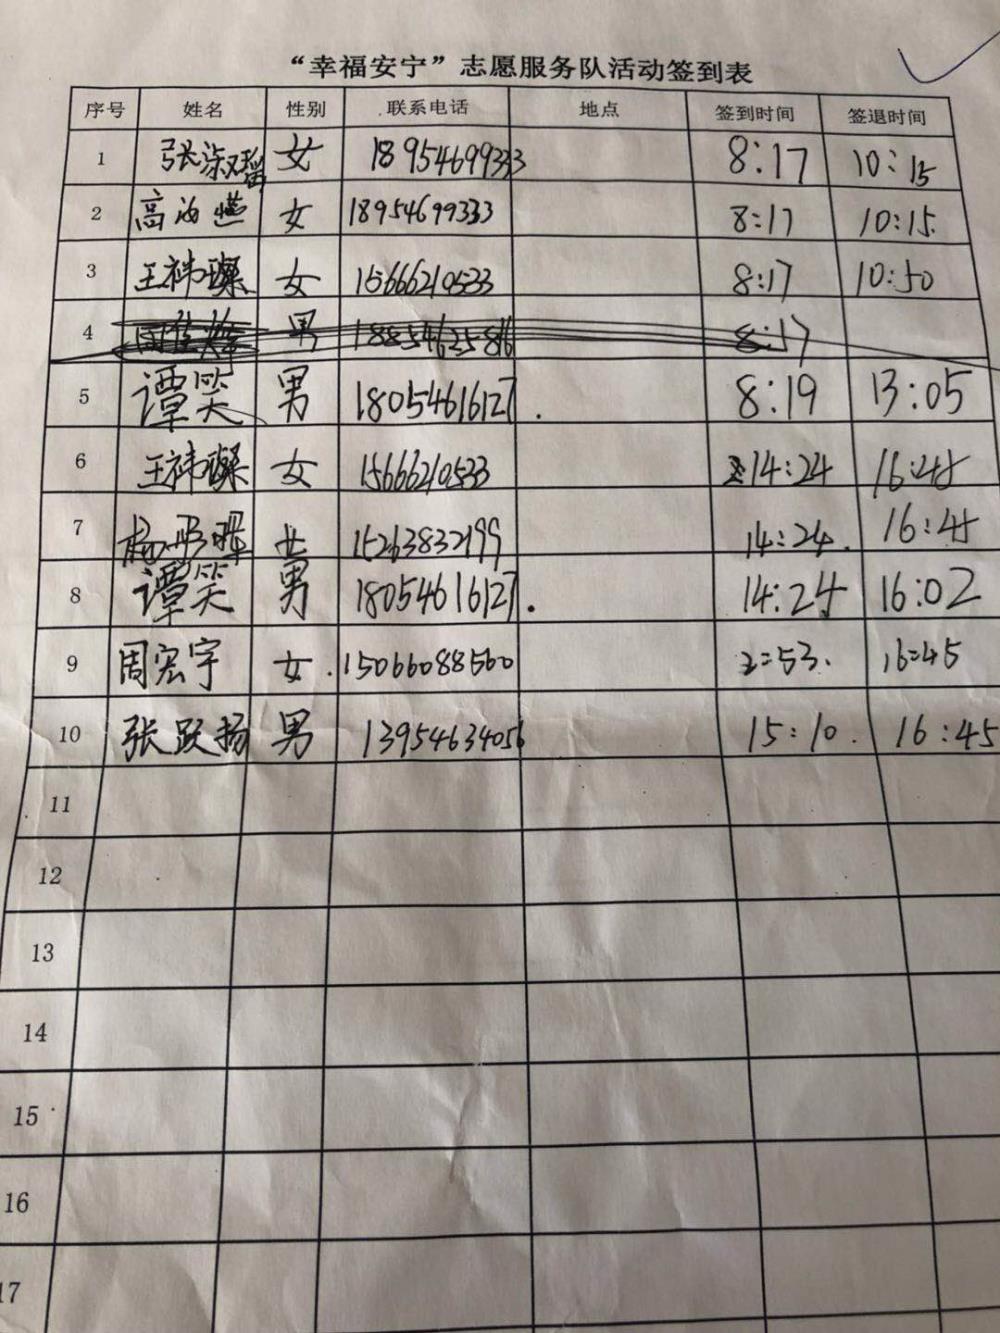 “幸福安宁”志愿服务队活动签到表
序号 姓名 性别 联系电话 地点 签到时间 签退时间
1 张淑瑶 女 18954699333 8:17 10:15
2 高 女 18954699333 8:17 10:15
3 王祎璨 女 15666210533 8:17 10:50
4 男 18854625816 8:17
5 谭笑 男 18054616127. 8:19 13:05
6 王祎璨 女 15666210533 14:24 16:48
7 杨 女 15263832199 14:24. 16:48
8 谭笑 男 18054616127. 14:24 16:02
9 周宏宇 女 .15066088560 2:53. 16:45
10 张跃扬 男 13954634056 15:10. 16:45
11
12
13
14
15
16
17